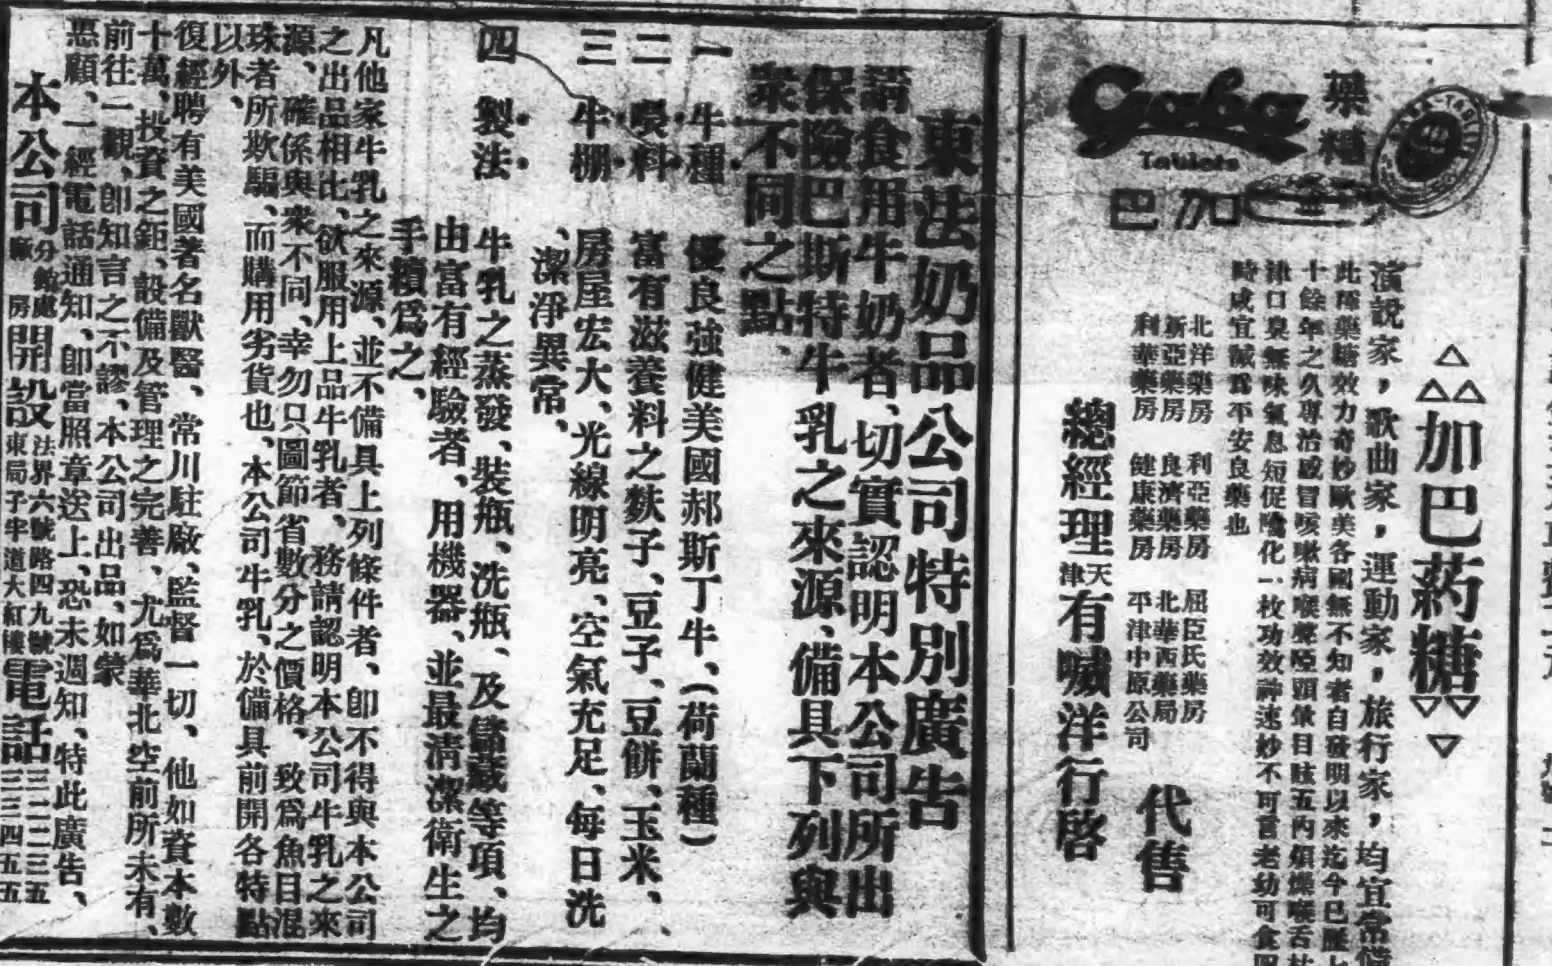 △加巴葯糖▽
演說家，歌曲家，運動家，旅行家，均宜常備
此種藥糖效力奇妙歐美各國無不知者自發明以來迄今已歷七
十餘年之久專治感冒咳嗽病喉聲啞頭暈目眩五內煩燥喉舌杜
津口臭無味氣息短促隨化一枚功效神速妙不可言老幼可食四
時咸宜誠為平安良藥也
藥糖
Gaba
Tablets
巴加
北洋藥房　利亞藥房　屈臣氏藥房
新亞藥房　良濟藥房　北華西藥局
利華藥房　健康藥房　平津中原公司
代售
總經理天津有喊洋行啓
東法奶品公司特別廣告
請食用牛奶者、切實認明本公司所出
保險巴斯特牛乳之來源、備具下列與
衆不同之點、
一　牛種　優良強健美國郝斯丁牛、(荷蘭種)
二　喂料　富有滋養料之麩子、豆子、豆餅、玉米、
三　牛棚　房屋宏大、光線明亮、空氣充足、每日洗
、潔淨異常、
四　製法　牛乳之蒸發、裝瓶、洗瓶、及儲藏等項、均
由富有經驗者、用機器、並最清潔衛生之
手續爲之、
凡他家牛乳之來源、並不備具上列條件者、卽不得與本公司
之出品相比、欲服用上品牛乳者、務請認明本公司牛乳之來
源、確係與衆不同、幸勿只圖節省數分之價格、致爲魚目混
珠者所欺騙、而購用劣貨也、本公司牛乳、於備具前開各特點
以外、
復經聘有美國著名獸醫、常川駐廠、監督一切、他如資本數
十萬、投資之鉅、設備及管理之完善、尤爲華北空前所未有、
前往一觀、卽知言之不謬、本公司出品、如蒙
惠顧、一經電話通知、卽當照章送上、恐未週知、特此廣告、
本公司分銷處開設法界六號路四九號電話三二二三五
廠房東局子半道大紅樓三三四五五